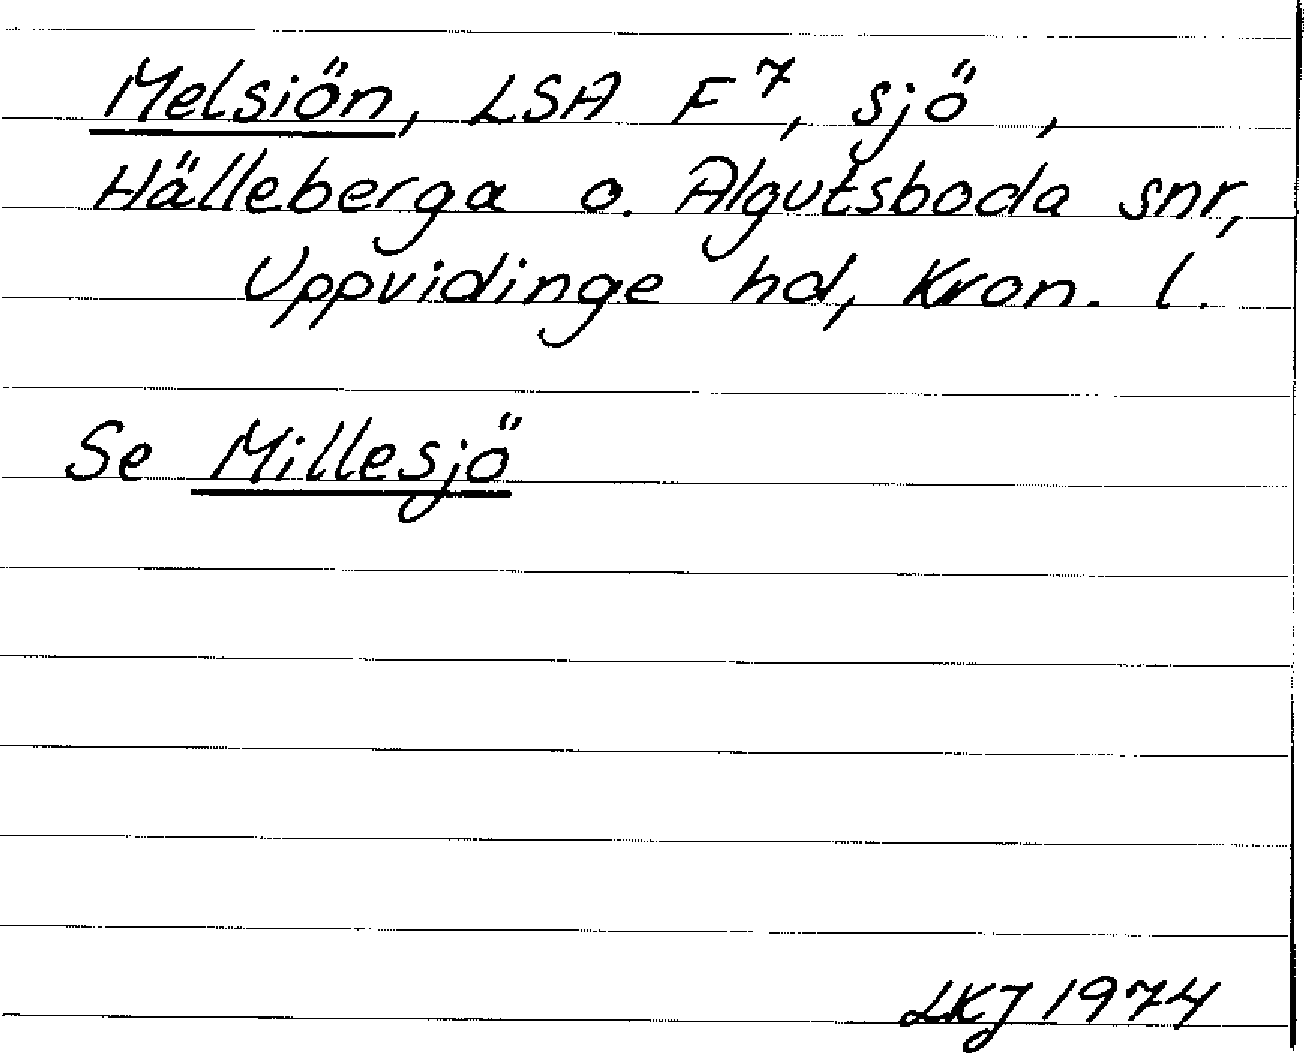 Melsiön, LSA F7, sjö,
Hälleberga o. Algutsboda snr,
Uppvidinge hd, Kron. l.
Se Millesjö
LKJ 1974